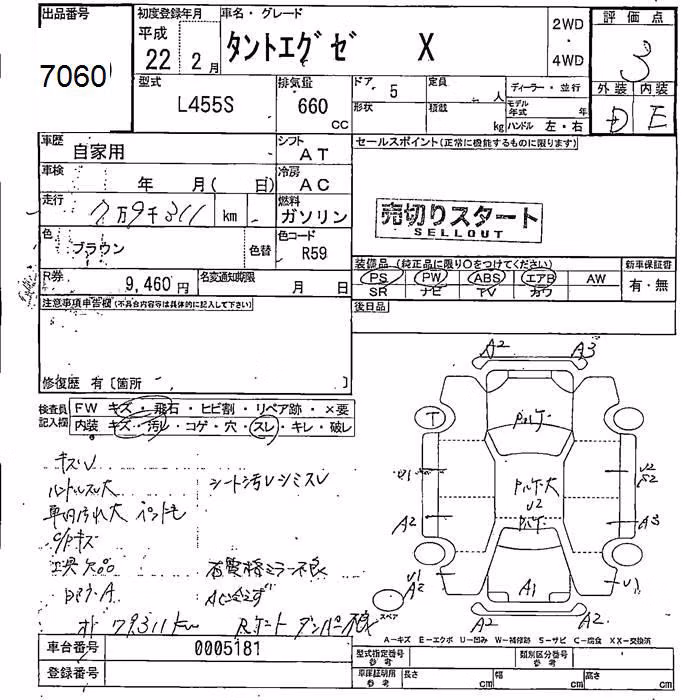 出品番号
7060
初度登録年月
平成
22年 2月
車名・グレード
タントエグゼ X
2WD
・
4WD
評価点
3
外装 内装
D E
型式
L455S
排気量
660
CC
ドア 5
定員 人
形状
積載 kg
ディーラー・並行
モデル年式 年
ハンドル 左・右
車歴
自家用
シフト
AT
セールスポイント(正常に機能するものに限ります)
車検
年 月( 日)
冷房
AC
走行
7万9千311 km
燃料
ガソリン
売切りスタート
SELLOUT
色
ブラウン
色替
色コード
R59
装備品 (純正品に限り○をつけてください)
新車保証書
PS PW ABS エアB AW
SR ナビ TV カワ
有・無
R券
9,460円
名変通知期限
月 日
後日品
注意事項申告欄(不具合内容等は具体的に記入して下さい)
修復歴 有〔箇所 〕
検査員
記入欄
FW キズ・飛石・ヒビ割・リペア跡・×要
内装 キズ・汚レ・コゲ・穴・スレ・キレ・破レ
キズレ
ハンドルスレ大
シート汚レシミスレ
車内汚れ大
C/Pキズ
工具欠品
右電格ミラー不良
AC冷えず
オド 79311km
Rゲートダンパー不良
A2 A3
T
U1
A2
U2
S2
A3
U1
A2
U1
A1
A2 A2
スペア
A-キズ E-エクボ U-凹み W-補修跡 S-サビ C-腐食 XX-交換済
車台番号
0005181
登録番号
型式指定番号
参考
類別区分番号
参考
車庫証明用
参考
長さ cm 幅 cm 高さ cm